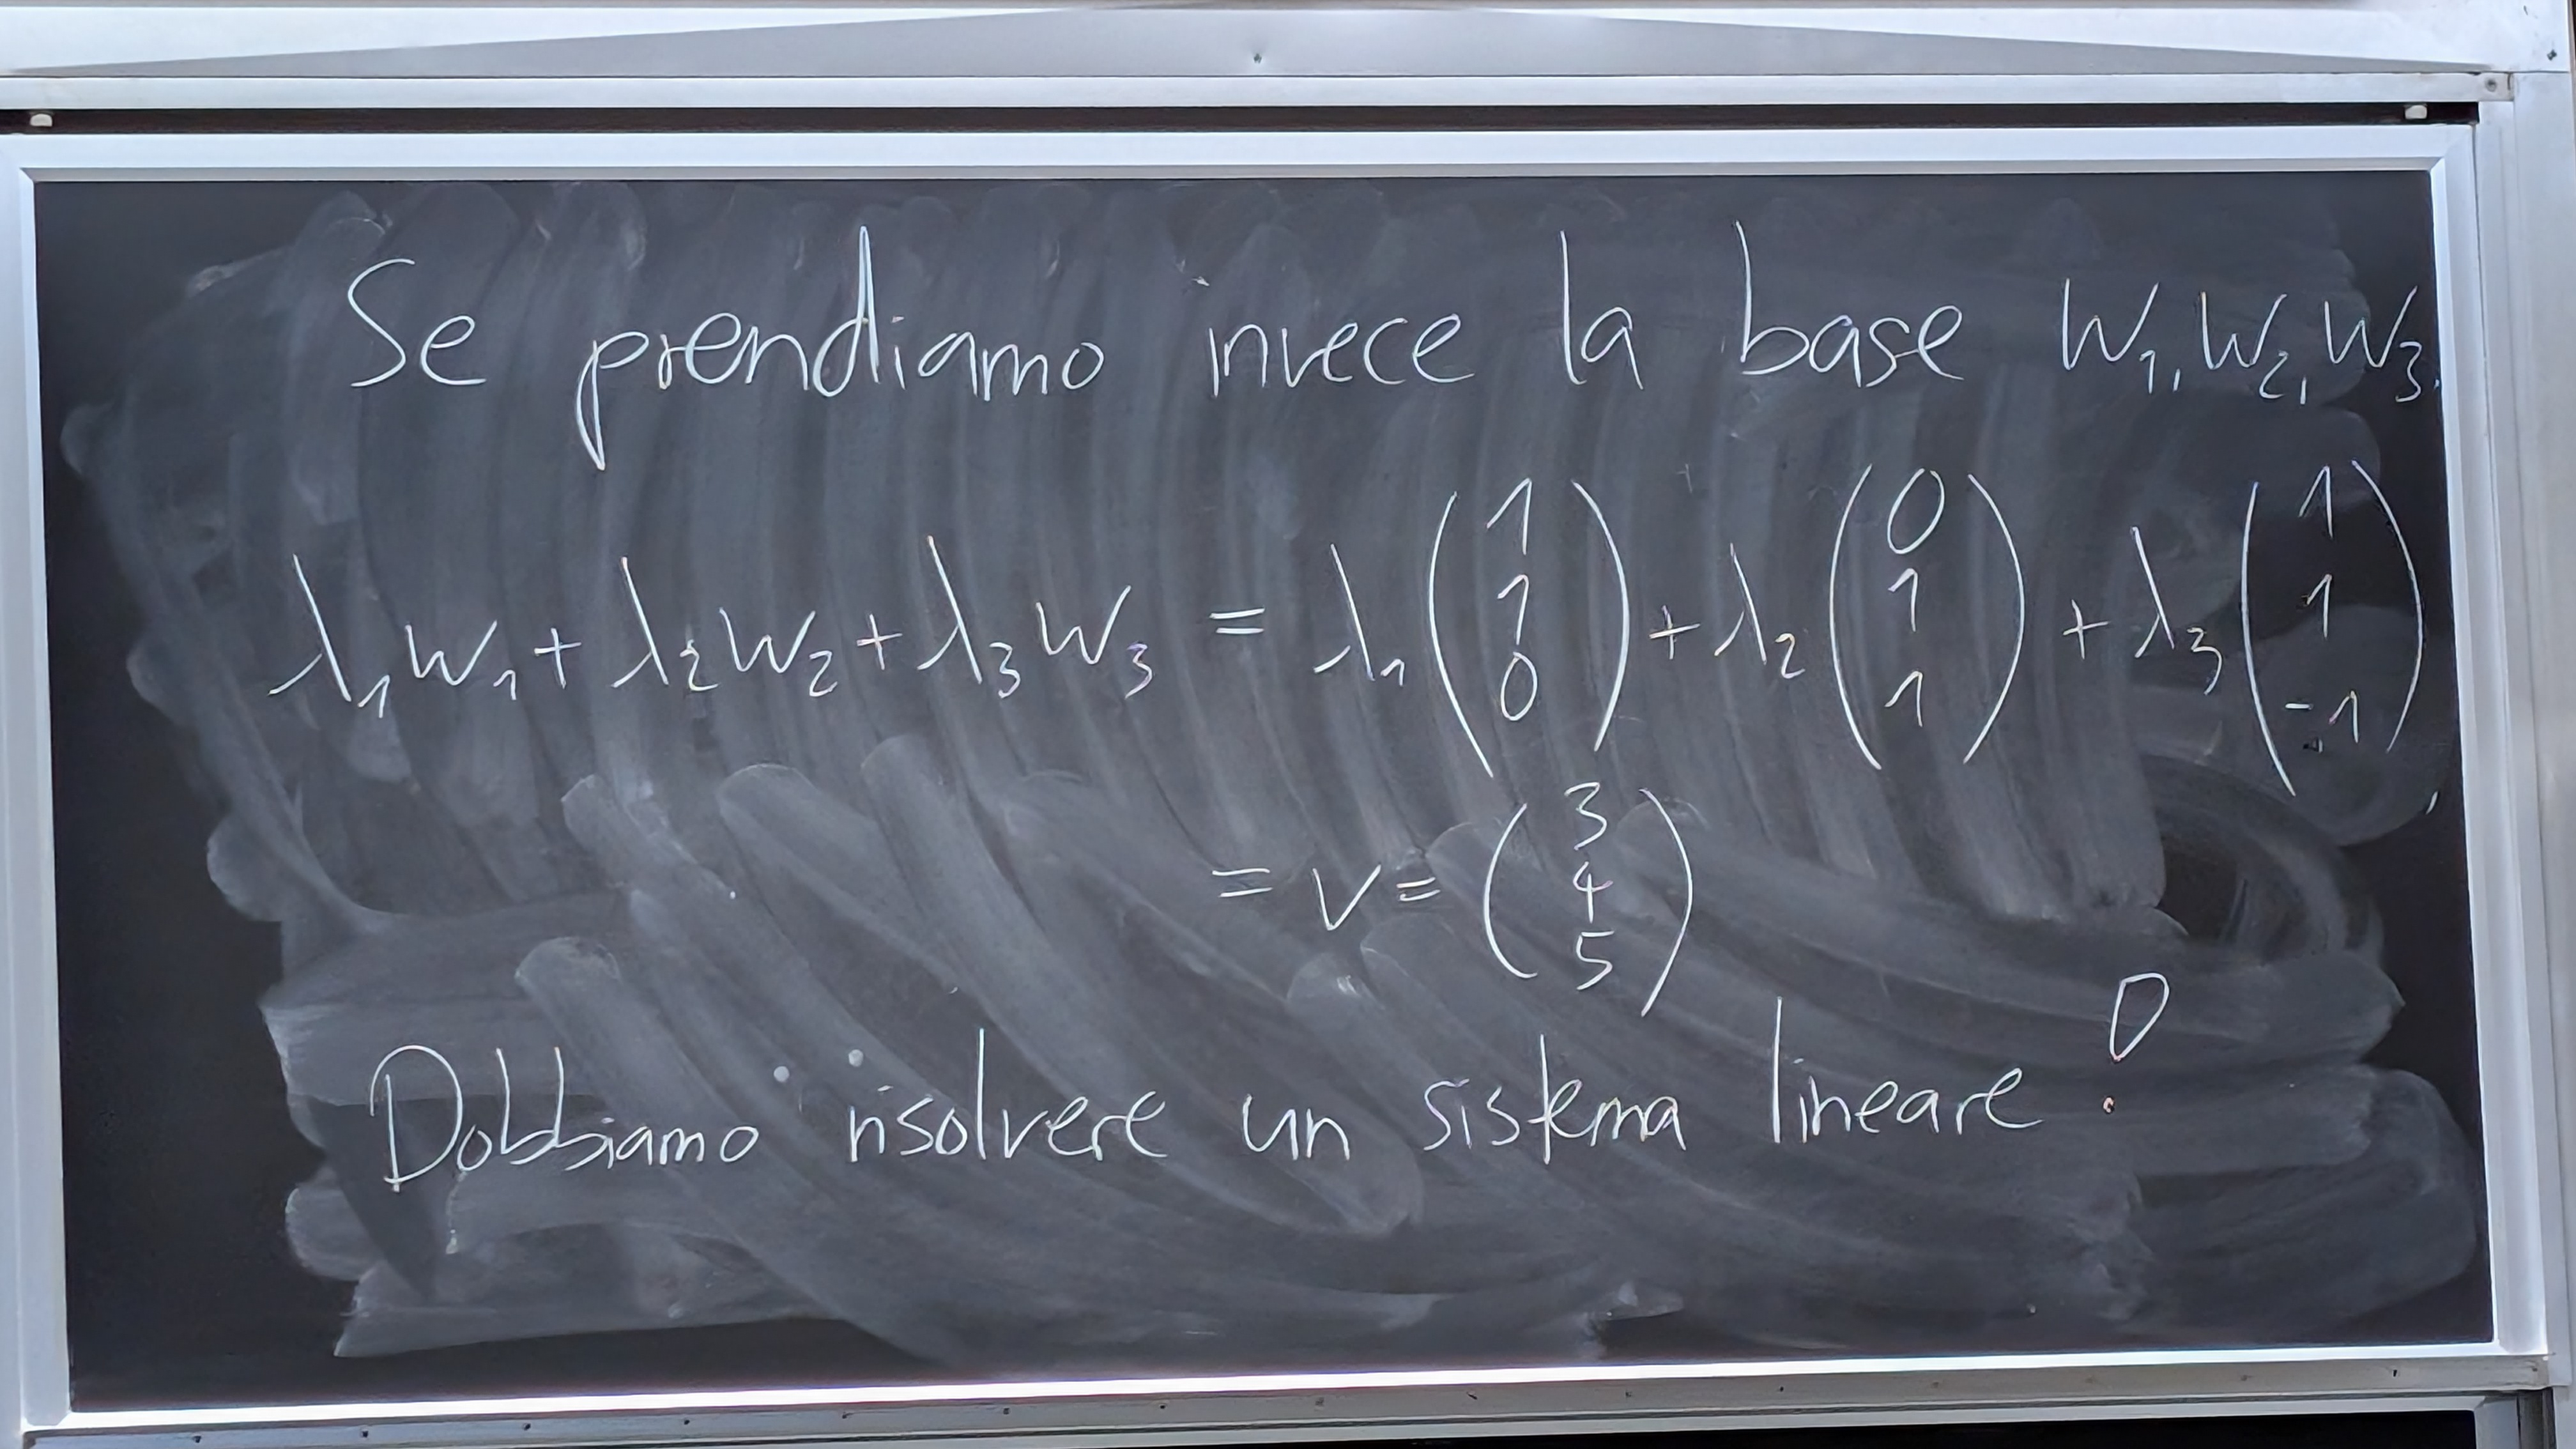 Se prendiamo invece la base W₁, W₂, W₃.
λ₁w₁ + λ₂w₂ + λ₃w₃ = λ₁(1 1 0) + λ₂(0 1 1) + λ₃(1 1 -1),
= v = (3 4 5)
Dobbiamo risolvere un sistema lineare!